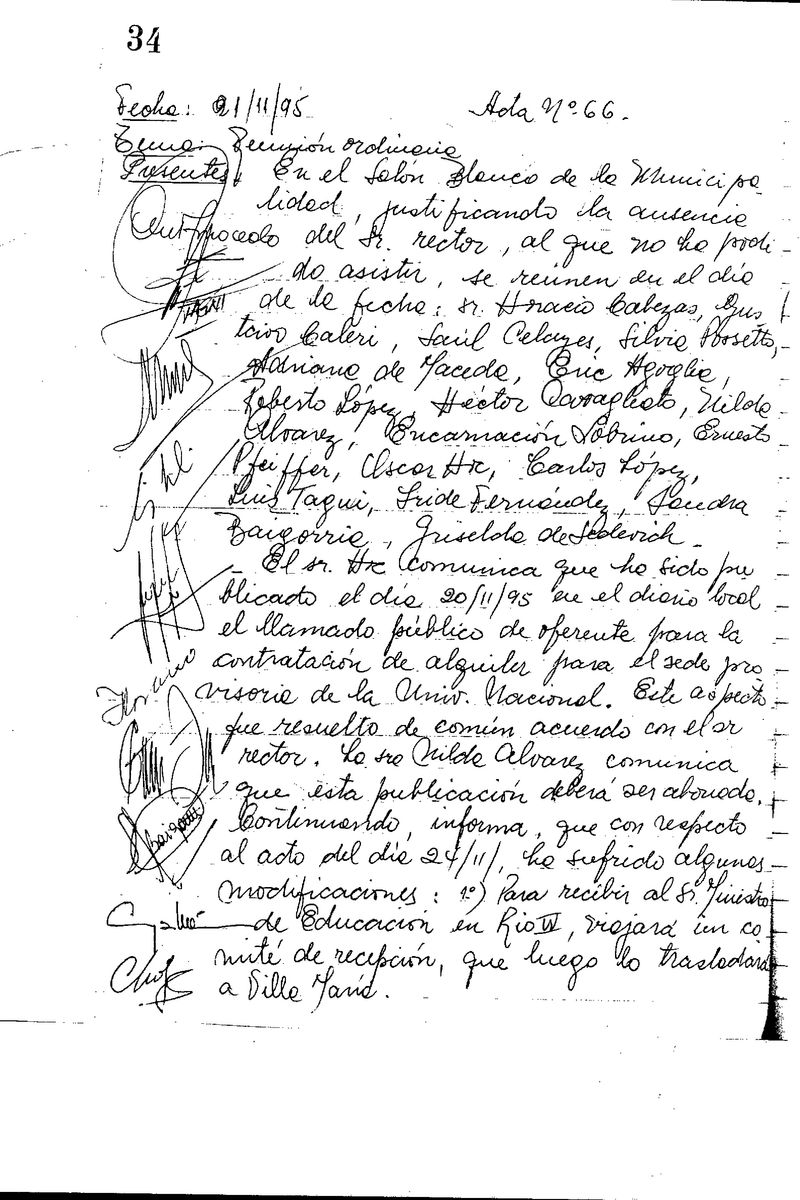 34
Fecha: 21/11/95 Acta Nº 66.
Tema: Reunión ordinaria
Presentes: En el Salón Blanco de la Municipa-
lidad, justificando la ausencia
del Sr. rector, al que no ha podi-
do asistir, se reúnen en el día
de la fecha: sr. Horacio Cabezas, Gus
tavo Caleri, Saúl Celayes, Silvia Rossetto,
Adriana de Maceda, Eric Agoglia,
Roberto López, Héctor Cavagliato, Nilda
Alvarez, Encarnación Sobrino, Ernesto
Pfeiffer, Oscar Hic, Carlos López,
Luis Tagni, Iride Fernández, Sandra
Baigorria, Griselda de Sederich.
El sr. Hic comunica que ha sido pu
blicado el día 20/11/95 en el diario local
el llamado público de oferente para la
contratación de alquiler para el sede pro
visoria de la Univ. Nacional. Este aspecto
fue resuelto de común acuerdo con el sr
rector. La sra Nilda Alvarez comunica
que esta publicación deberá ser abonada.
Continuando, informa, que con respecto
al acto del día 24/11/, ha sufrido algunas
modificaciones: 1º) Para recibir al Sr. Ministro
de Educación en Río IV, viajará un co-
mité de recepción, que luego lo trasladará
a Villa María.